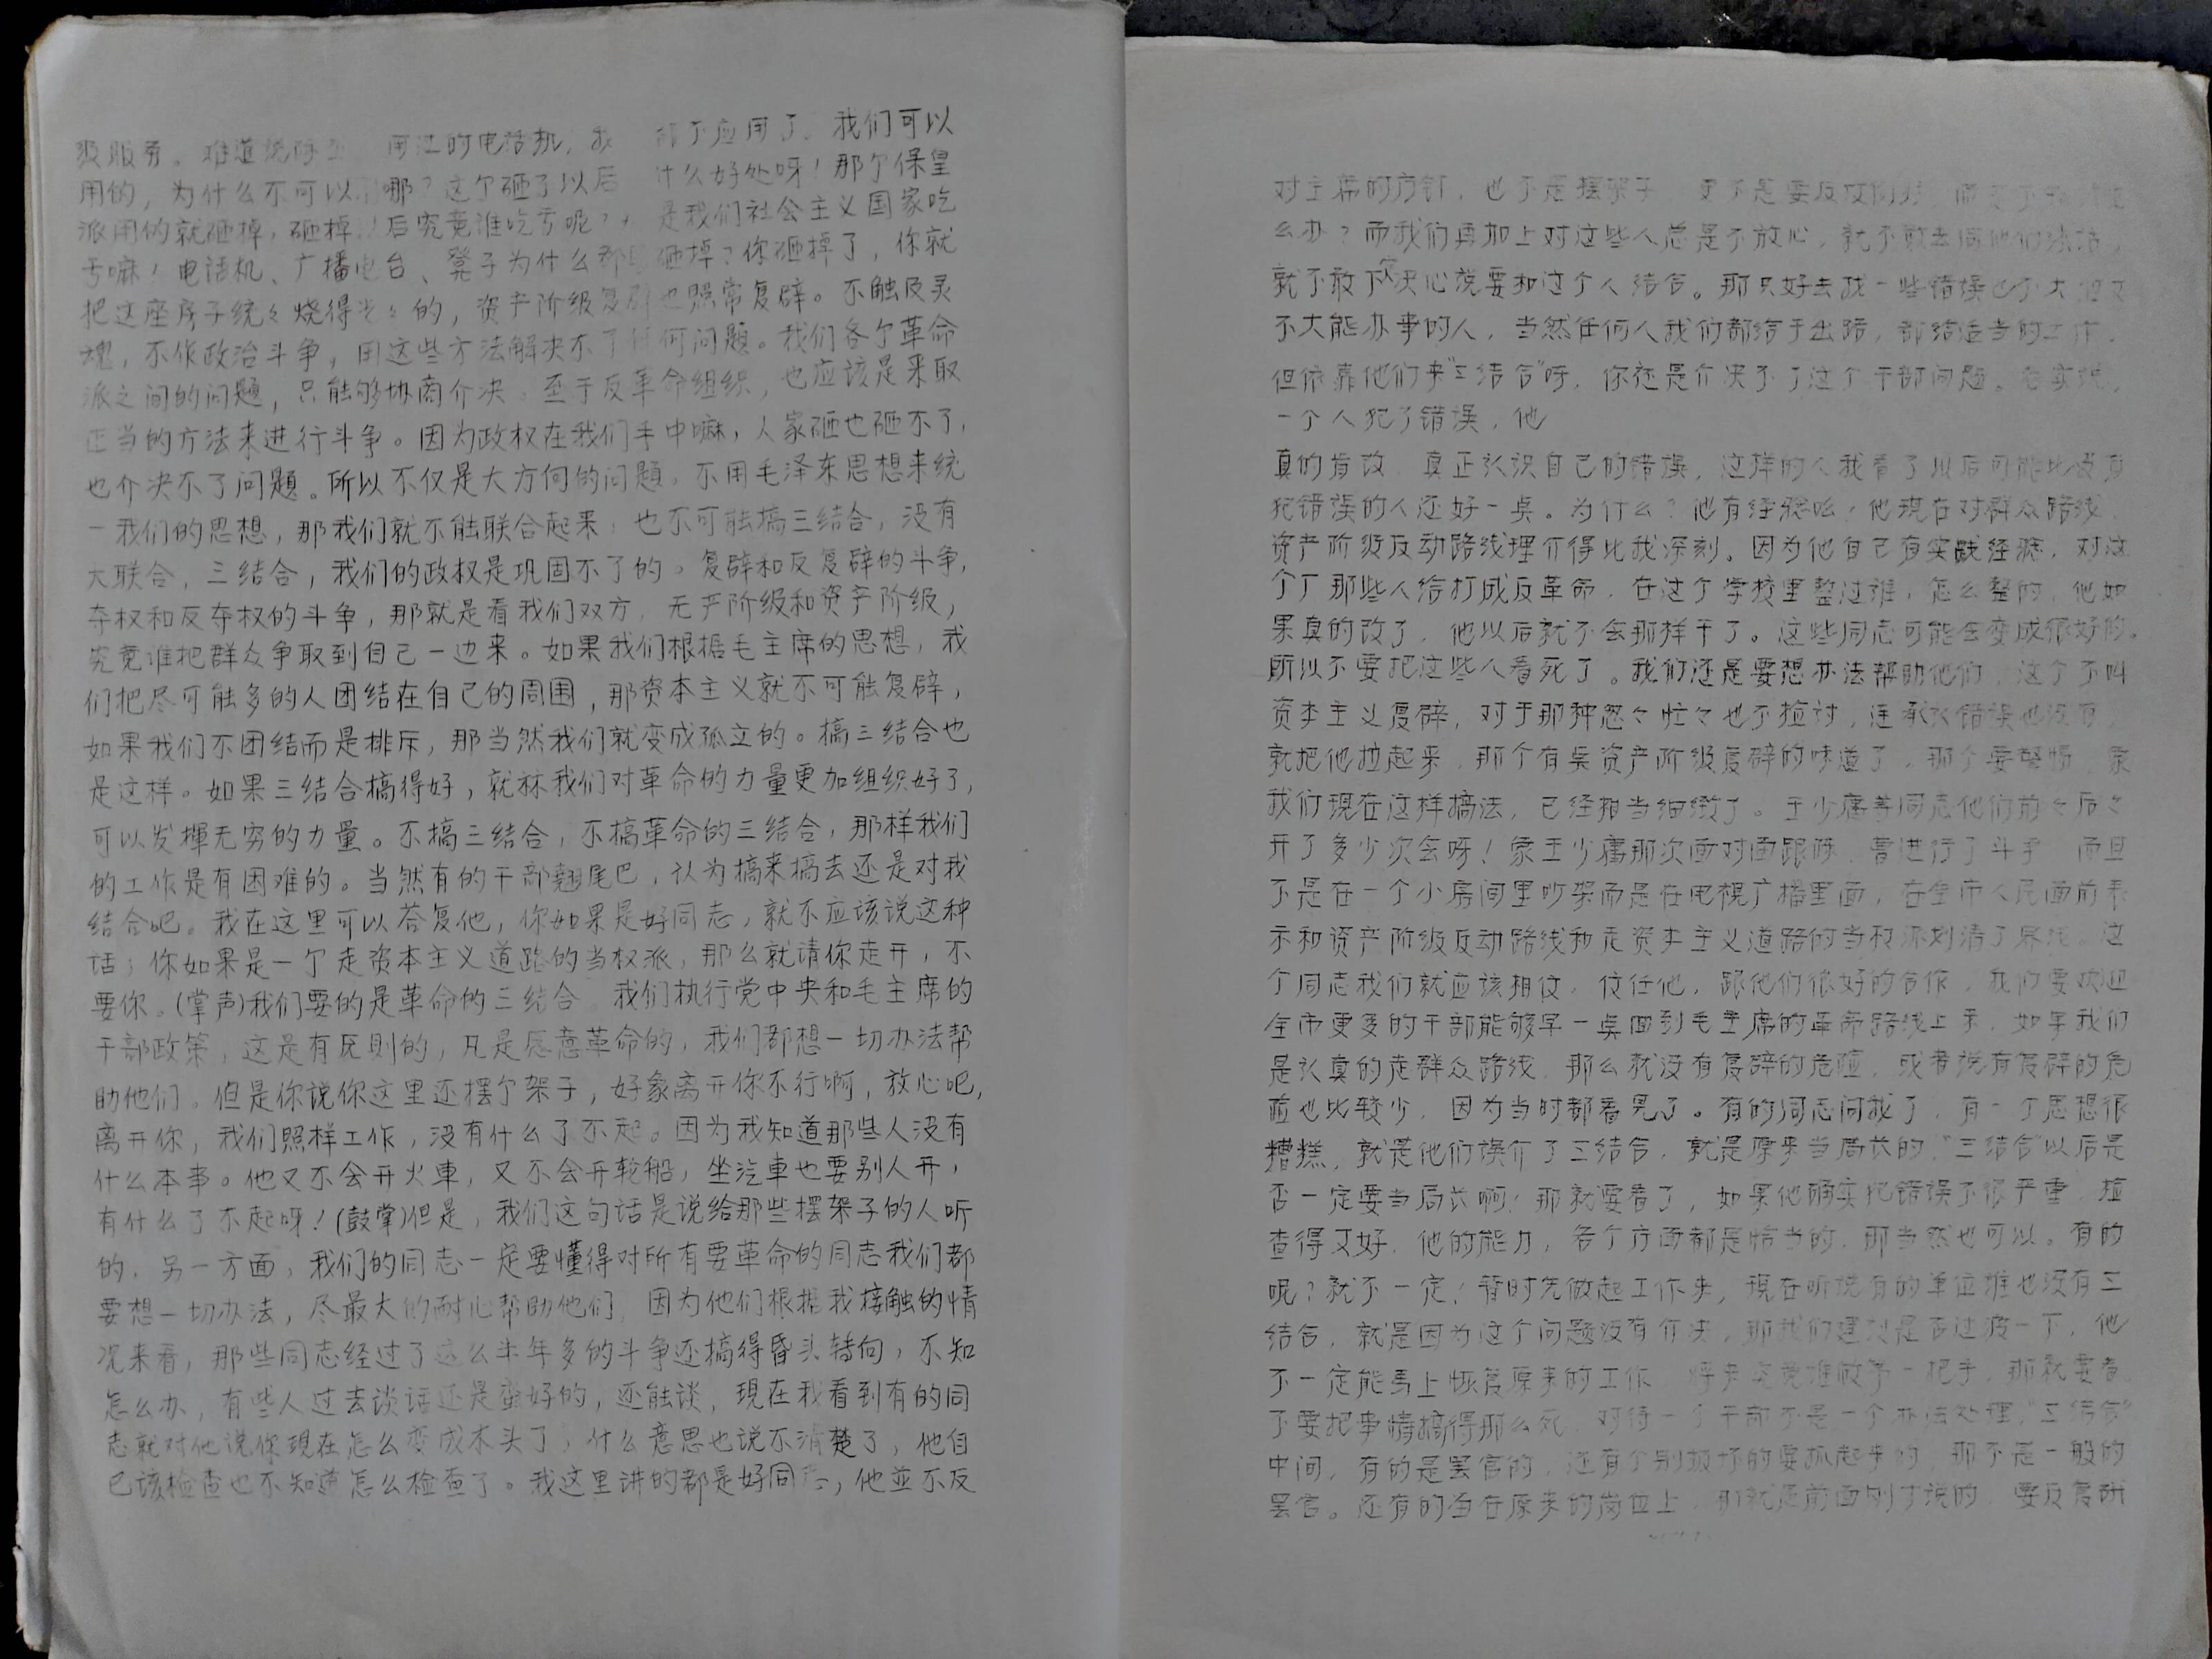 级服务。难道说 用过的电话机，我 都不应用了。我们可以
用的，为什么不可以 哪？这个砸了以后 什么好处呀！那个保皇
派用的就砸掉，砸掉以后究竟谁吃亏呢？ 是我们社会主义国家吃
亏嘛！电话机、广播电台、凳子为什么都 砸掉？你砸掉了，你就
把这座房子统々烧得光々的，资产阶级复辟也照常复辟。不触及灵
魂，不作政治斗争，用这些方法解决不了任何问题。我们各个革命
派之间的问题，只能够协商介决。至于反革命组织，也应该是采取
正当的方法来进行斗争。因为政权在我们手中嘛，人家砸也砸不了，
也介决不了问题。所以不仅是大方向的问题，不用毛泽东思想来统
一我们的思想，那我们就不能联合起来，也不可能搞三结合，没有
大联合，三结合，我们的政权是巩固不了的。复辟和反复辟的斗争，
夺权和反夺权的斗争，那就是看我们双方，无产阶级和资产阶级，
究竟谁把群众争取到自己一边来。如果我们根据毛主席的思想，我
们把尽可能多的人团结在自己的周围，那资本主义就不可能复辟，
如果我们不团结而是排斥，那当然我们就变成孤立的。搞三结合也
是这样。如果三结合搞得好，就 我们对革命的力量更加组织好了，
可以发揮无穷的力量。不搞三结合，不搞革命的三结合，那样我们
的工作是有困难的。当然有的干部翘尾巴，认为搞来搞去还是对我
结合吧。我在这里可以答复他，你如果是好同志，就不应该说这种
话；你如果是一个走资本主义道路的当权派，那么就请你走开，不
要你。（掌声）我们要的是革命的三结合 我们执行党中央和毛主席的
干部政策，这是有原则的，凡是愿意革命的，我们都想一切办法帮
助他们。但是你说你这里还摆个架子，好象离开你不行啊，放心吧，
离开你，我们照样工作，没有什么了不起。因为我知道那些人没有
什么本事。他又不会开火車，又不会开轮船，坐汽車也要别人开，
有什么了不起呀！（鼓掌）但是，我们这句话是说给那些摆架子的人听
的，另一方面，我们的同志一定要懂得对所有要革命的同志我们都
要想一切办法，尽最大的耐心帮助他们，因为他们根据我接触的情
况来看，那些同志经过了这么半年多的斗争还搞得昏头转向，不知
怎么办，有些人过去谈话还是蛮好的，还能谈，現在我看到有的同
志就对他说你現在怎么变成木头了，什么意思也说不清楚了，他自
已该检查也不知道怎么检查了。我这里讲的都是好同志，他並不反
对主席的方针，也不是摆架子，更不是要反攻 而是不知 怎
么办？而我们再加上对这些人总是不放心，就不敢去同他们 结，
就不敢下定决心说要和这个人结合。那只好去找一些错误也不大 又
不大能办事的人，当然任何人我们都给于出路，都给适当的工作，
但依靠他们来“三结合”呀，你还是介决不了这个干部问题。老实说，
一个人犯了错误，他
真的肯改，真正认识自己的错误，这样的人我看了以后可能比没有
犯错误的人还好一点。为什么？他有经验么！他現在对群众路线，
资产阶级反动路线理介得比我深刻。因为他自己有实践经验，对这
个厂那些人给打成反革命，在这个学校里整过谁，怎么整的，他如
果真的改了，他以后就不会那样干了。这些同志可能会变成很好的。
所以不要把这些人看死了。我们还是要想办法帮助他们，这个不叫
资本主义复辟，对于那种忽々忙々也不检讨，连承认错误也没有
就把他拉起来，那个有点资产阶级复辟的味道了，那个要警惕，象
我们現在这样搞法，已经相当细緻了。王少庸等同志他们前々后々
开了多少次会呀！象王少庸那次面对面跟陈、曹进行了斗争 而且
不是在一个小房间里吵架而是在电視广播里面，在全市人民面前表
示和资产阶级反动路线和走资本主义道路的当权派划清了界线。这
个同志我们就应该相信，信任他，跟他们很好的合作，我们要欢迎
全市更多的干部能够早一点回到毛主席的革命路线上来，如果我们
是认真的走群众路线，那么就没有复辟的危险，或者说有复辟的危
险也比较少，因为当时都看見了。有的同志问我了，有一个思想很
糟糕，就是他们误介了三结合，就是原来当局长的，“三结合”以后是
否一定要当局长啊！那就要看了，如果他确实犯错误不很严重 检
查得又好，他的能力，各个方面都是恰当的，那当然也可以。有的
呢？就不一定！暂时先做起工作来，現在听说有的单位谁也没有三
结合，就是因为这个问题没有介决，那我们建议是否过渡一下，他
不一定能马上恢复原来的工作 将来究竟谁做第一把手，那就要看
不要把事情搞得那么死，对待一个干部不是一个办法处理，“三结合”
中间，有的是罢官的，还有个别极坏的要抓起来的，那不是一般的
罢官。还有的留在原来的岗位上，那就是前面刚才说的，要反复研